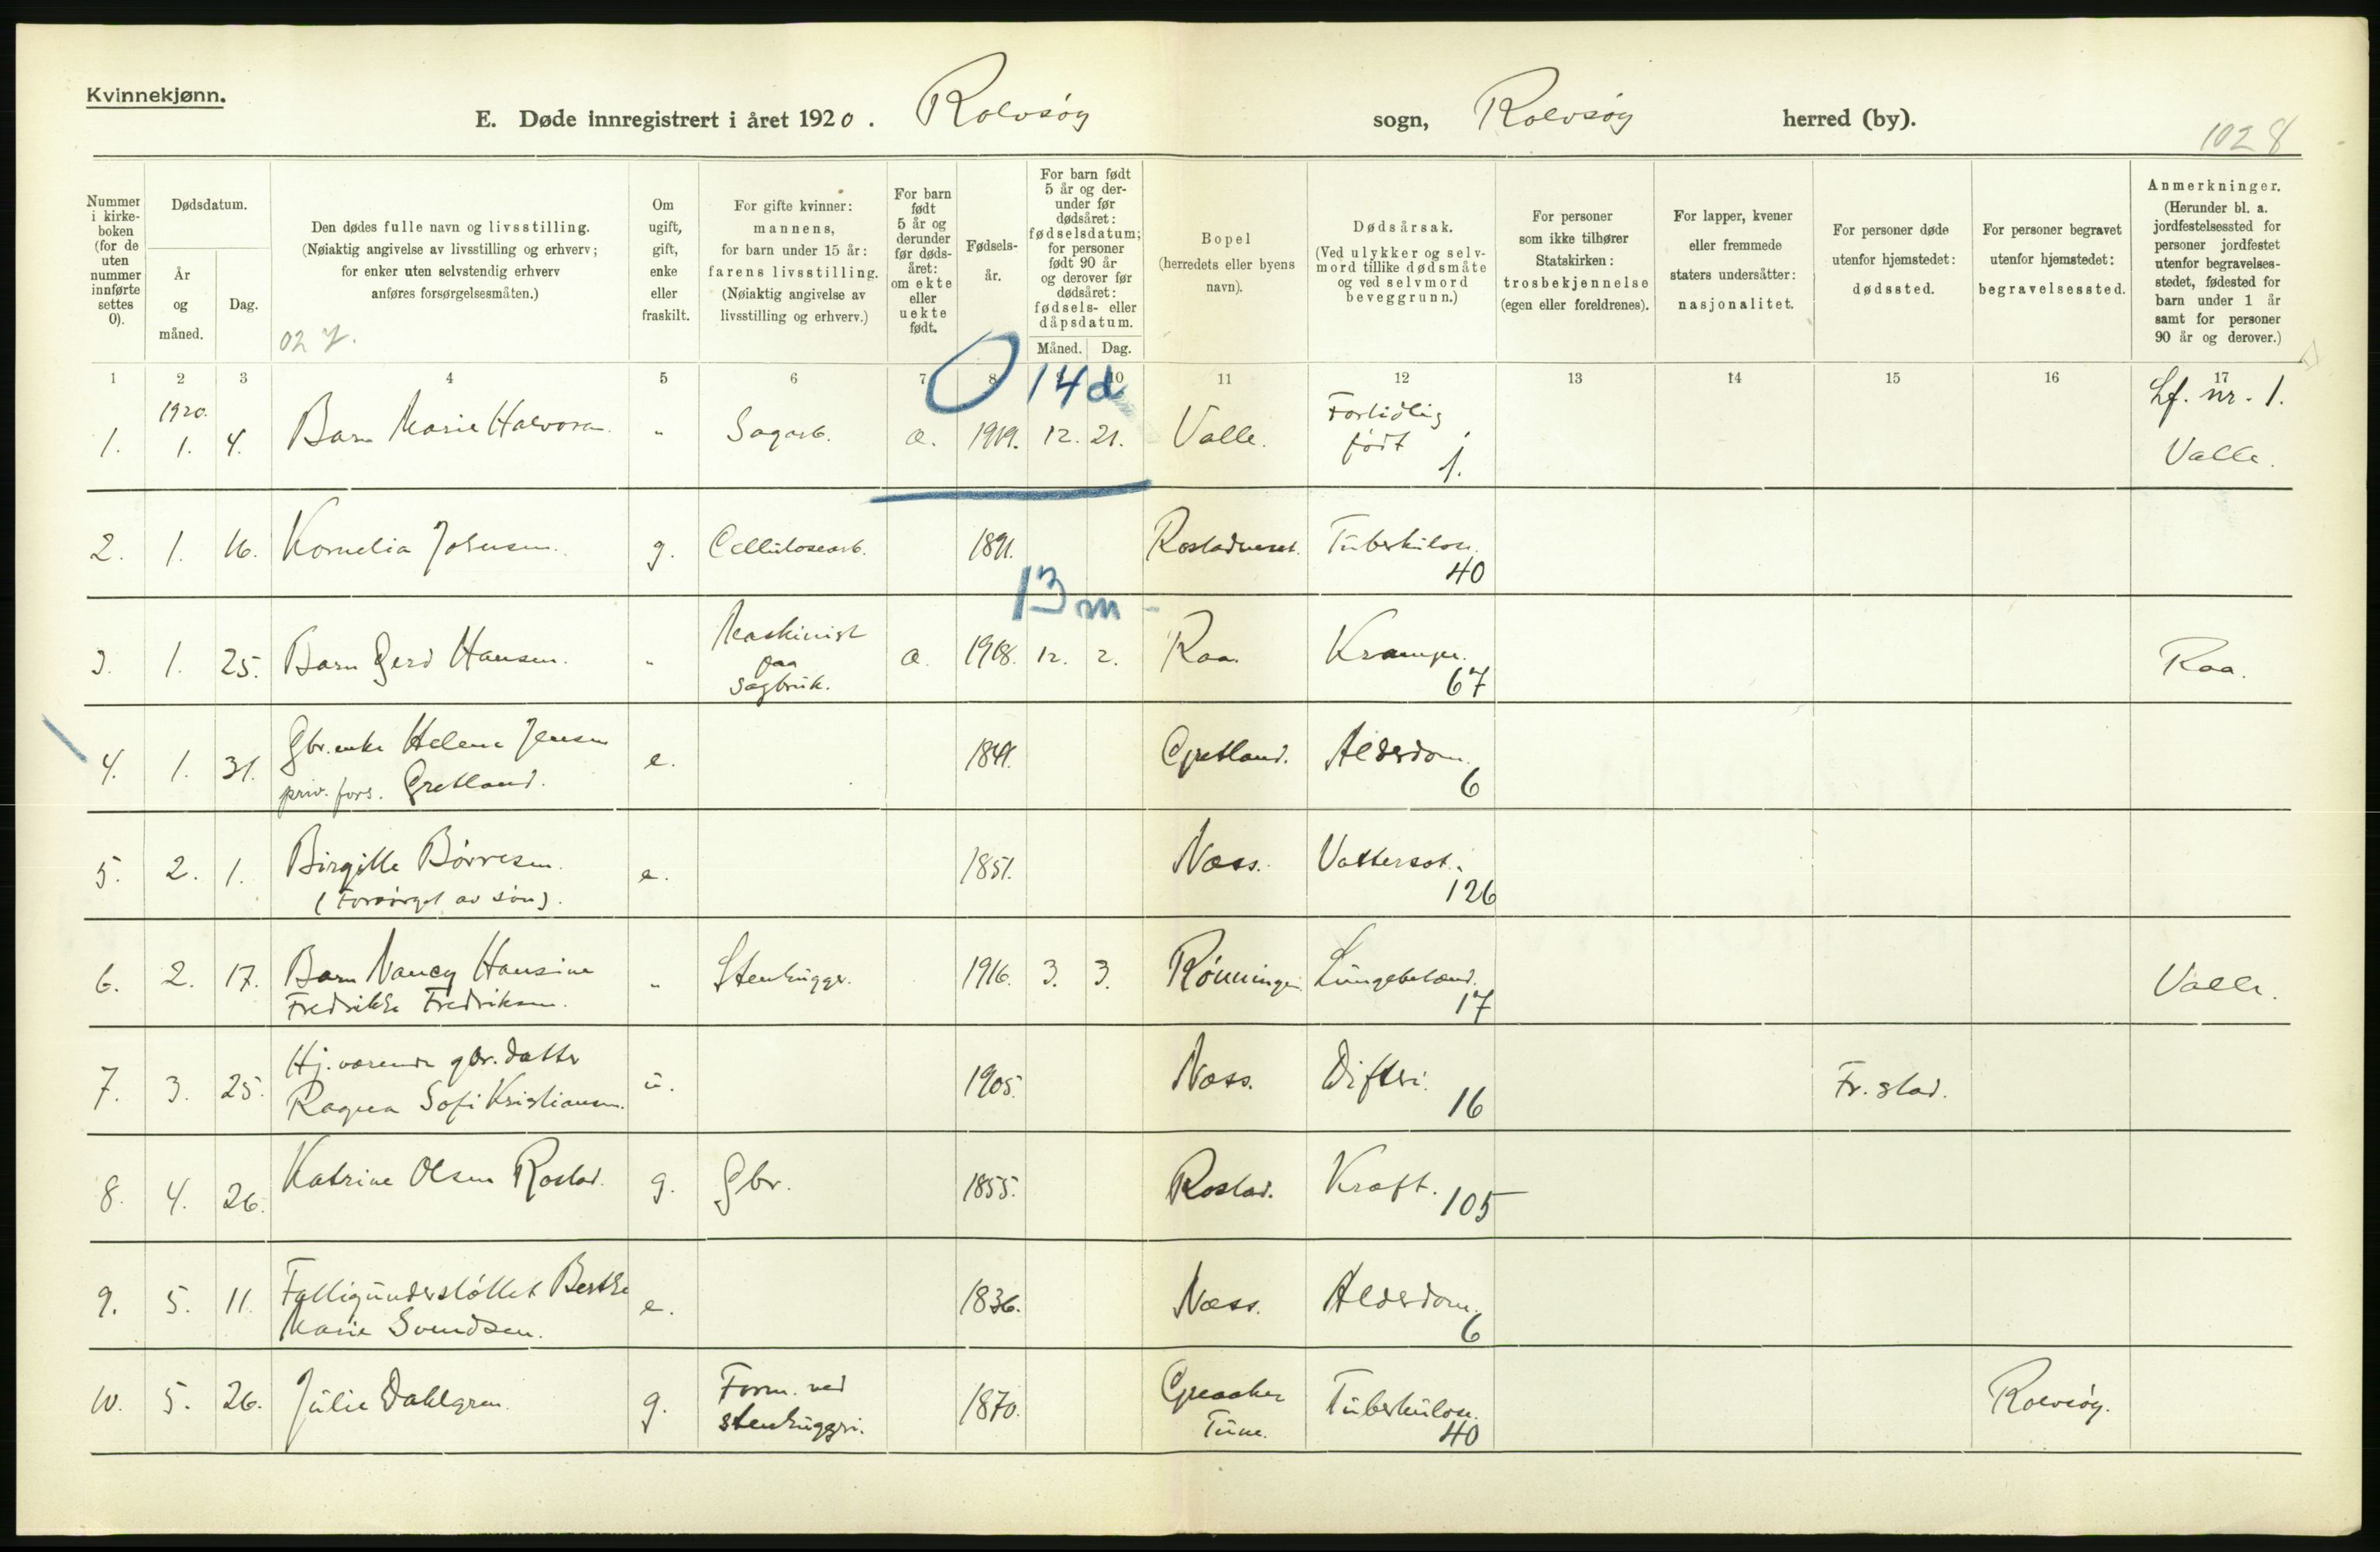 Kvinnekjønn.
E. Døde innregistrert i året 1920. Rolvsøy sogn, Rolvsøy herred (by).
1028
Nummer i kirkeboken (for de uten nummer innførte settes 0).
Dødsdatum.
År og måned.
Dag.
Den dødes fulle navn og livsstilling.
(Nøiaktig angivelse av livsstilling og erhverv;
for enker uten selvstendig erhverv
anføres forsørgelsesmåten.)
02 7.
Om ugift, gift, enke eller fraskilt.
For gifte kvinner: mannens, for barn under 15 år: farens livsstilling. (Nøiaktig angivelse av livsstilling og erhverv.)
For barn født 5 år og derunder før dødsåret: om ekte eller uekte født.
Fødselsår.
For barn født 5 år og derunder før dødsåret: fødselsdatum; for personer født 90 år og derover før dødsåret: fødsels- eller dåpsdatum.
Måned. Dag.
Bopel (herredets eller byens navn).
Dødsårsak. (Ved ulykker og selvmord tillike dødsmåte og ved selvmord beveggrunn.)
For personer som ikke tilhører Statskirken: trosbekjennelse (egen eller foreldrenes).
For lapper, kvener eller fremmede staters undersåtter: nasjonalitet.
For personer døde utenfor hjemstedet: dødssted.
For personer begravet utenfor hjemstedet: begravelsessted.
Anmerkninger. (Herunder bl. a. jordfestelsessted for personer jordfestet utenfor begravelsesstedet, fødested for barn under 1 år samt for personer 90 år og derover.)
1 2 3 4 5 6 7 8 9 10 11 12 13 14 15 16 17
0 14d
1920.
1. 1. 4. Barn Marie Halvorsen. " Sagarb. a. 1919. 12. 21. Valle. Fortidlig født 1. Lf. nr. 1. Valle.
2. 1. 16. Kornelia Johensen. g. Cellulosearb. 1891. Tuberkulose. 40
13 m
3. 1. 25. Barn Gerd Hansen. " Maskinist paa Sagbruk. a. 1918. 12. 2. Raa. Krampe. 67 Raa.
4. 1. 31. Gbr.enke Helene Jensen
priv. fors. Gretland. e. 1841. Gretland. Alderdom. 6
5. 2. 1. Birgitte Børresen.
(Forsørget av søn). e. 1851. Næss. Vattersot. 126
6. 2. 17. Barn Nancy Hansine
Fredrikke Fredriksen. " Stenhugger. 1916. 3. 3. Rønningen Lungebetænd. 17 Valle.
7. 3. 25. Hj.værende gbr.datter
Ragna Sofi Kristiansen. u. 1905. Næss. Difteri. 16 Fr.stad.
8. 4. 26. Katrine Olsen Rostad. g. Gbr. 1855. Rostad. Kræft. 105
9. 5. 11. Fattigunderstøttet Berthe
Marie Svendsen. e. 1836. Næss. Alderdom. 6
10. 5. 26. Julie Dahlgren. g. Form. ved stenhuggeri. 1870. Greaaker Tune. Tuberkulose. 40 Rolvsøy.